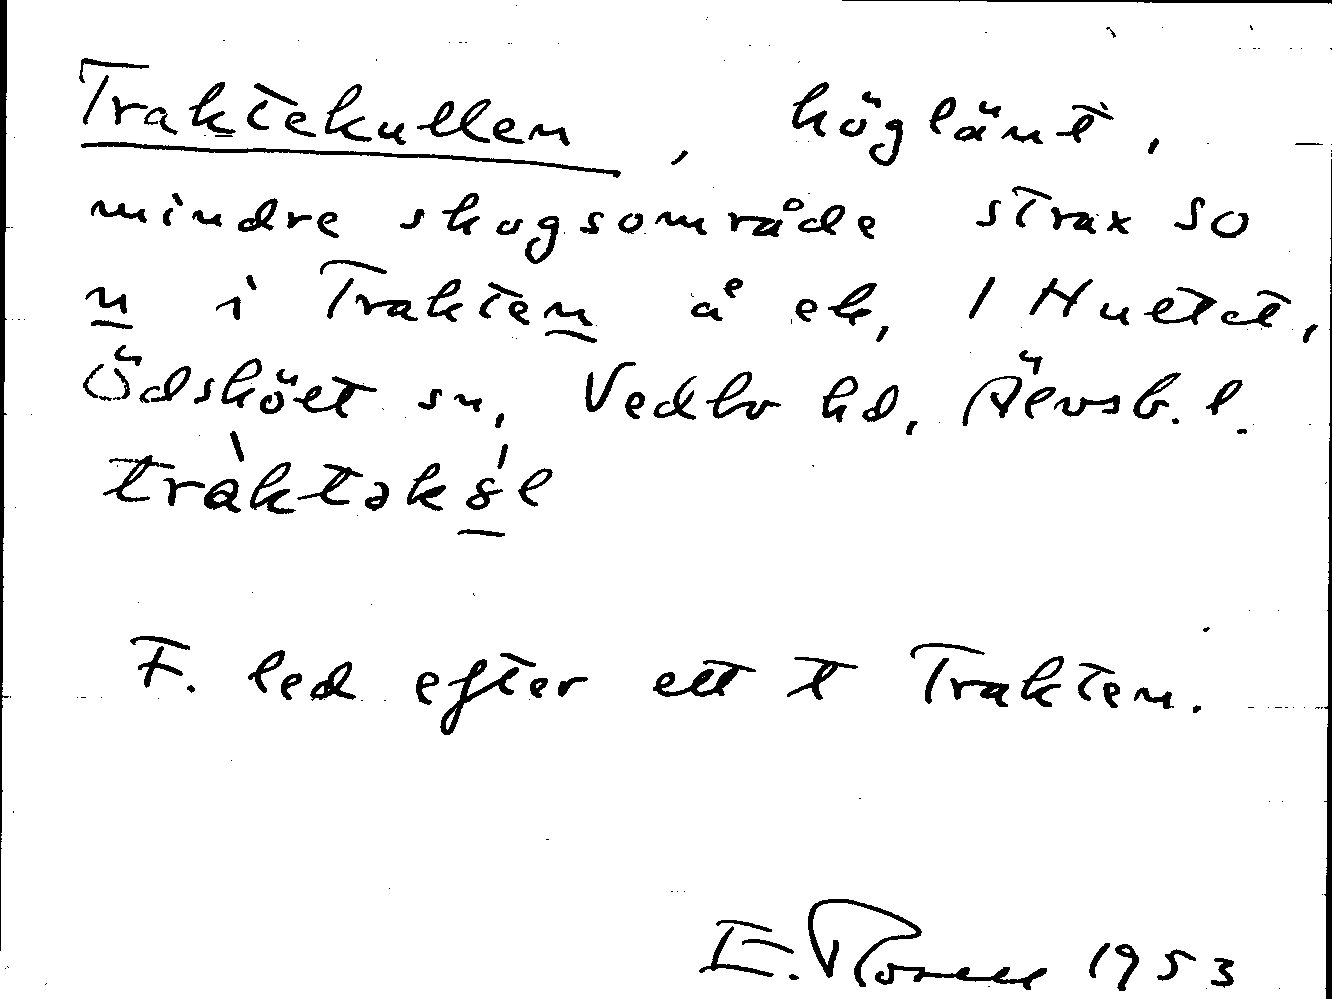 Traktekullen, höglänt,
mindre skogsområde strax so
n i Trakten å ek, 1 Hultet,
Ödskölt sn, Vedbo hd, Älvsb. l.
tràktəkə́l
F. led efter ett t Trakten.
E. 1953